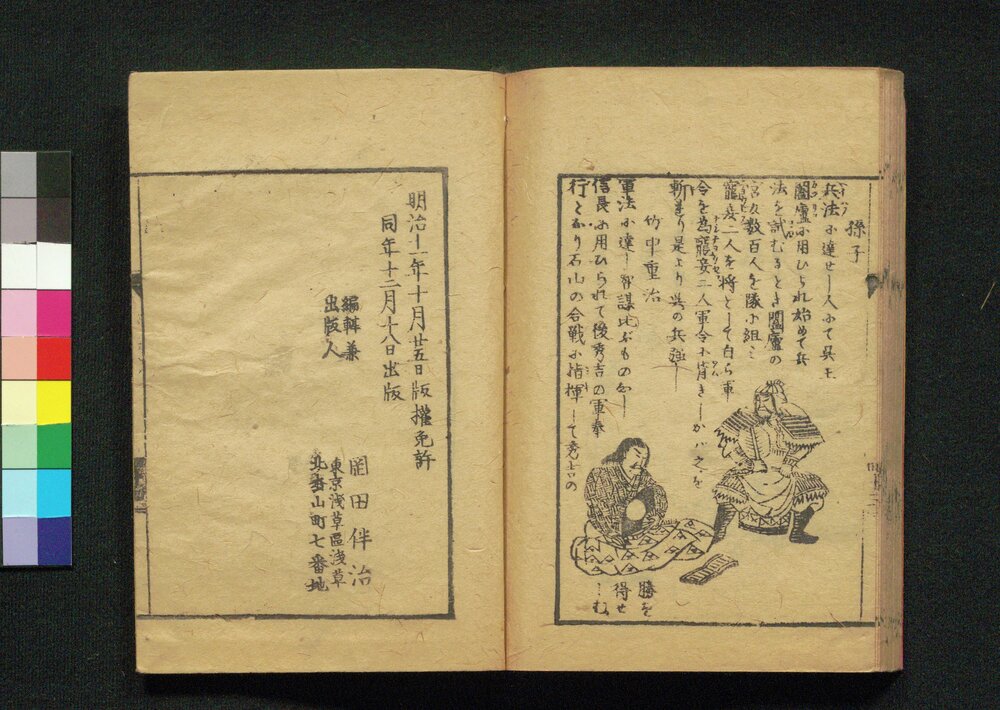 孫子
兵法に達せし人にて呉王
闔廬に用ひられ始めて兵
法を試むるとき闔廬の
宮女数百人を隊に組ミ
寵妾二人を将として自ら軍
令を為寵妾二人軍令に背きしかバ之を
斬より是より呉の兵強し
竹中重治
軍法に達し智謀比ぶものなし
信長に用ひられて後秀吉の軍奉
行となり石山の合戦に指揮して秀吉の
勝を
得せ
しむ
明治十一年十月廿五日版權免許
同年十二月十八日出版
編輯兼
出版人
岡田伴治
東京浅草區浅草
北番山町七番地